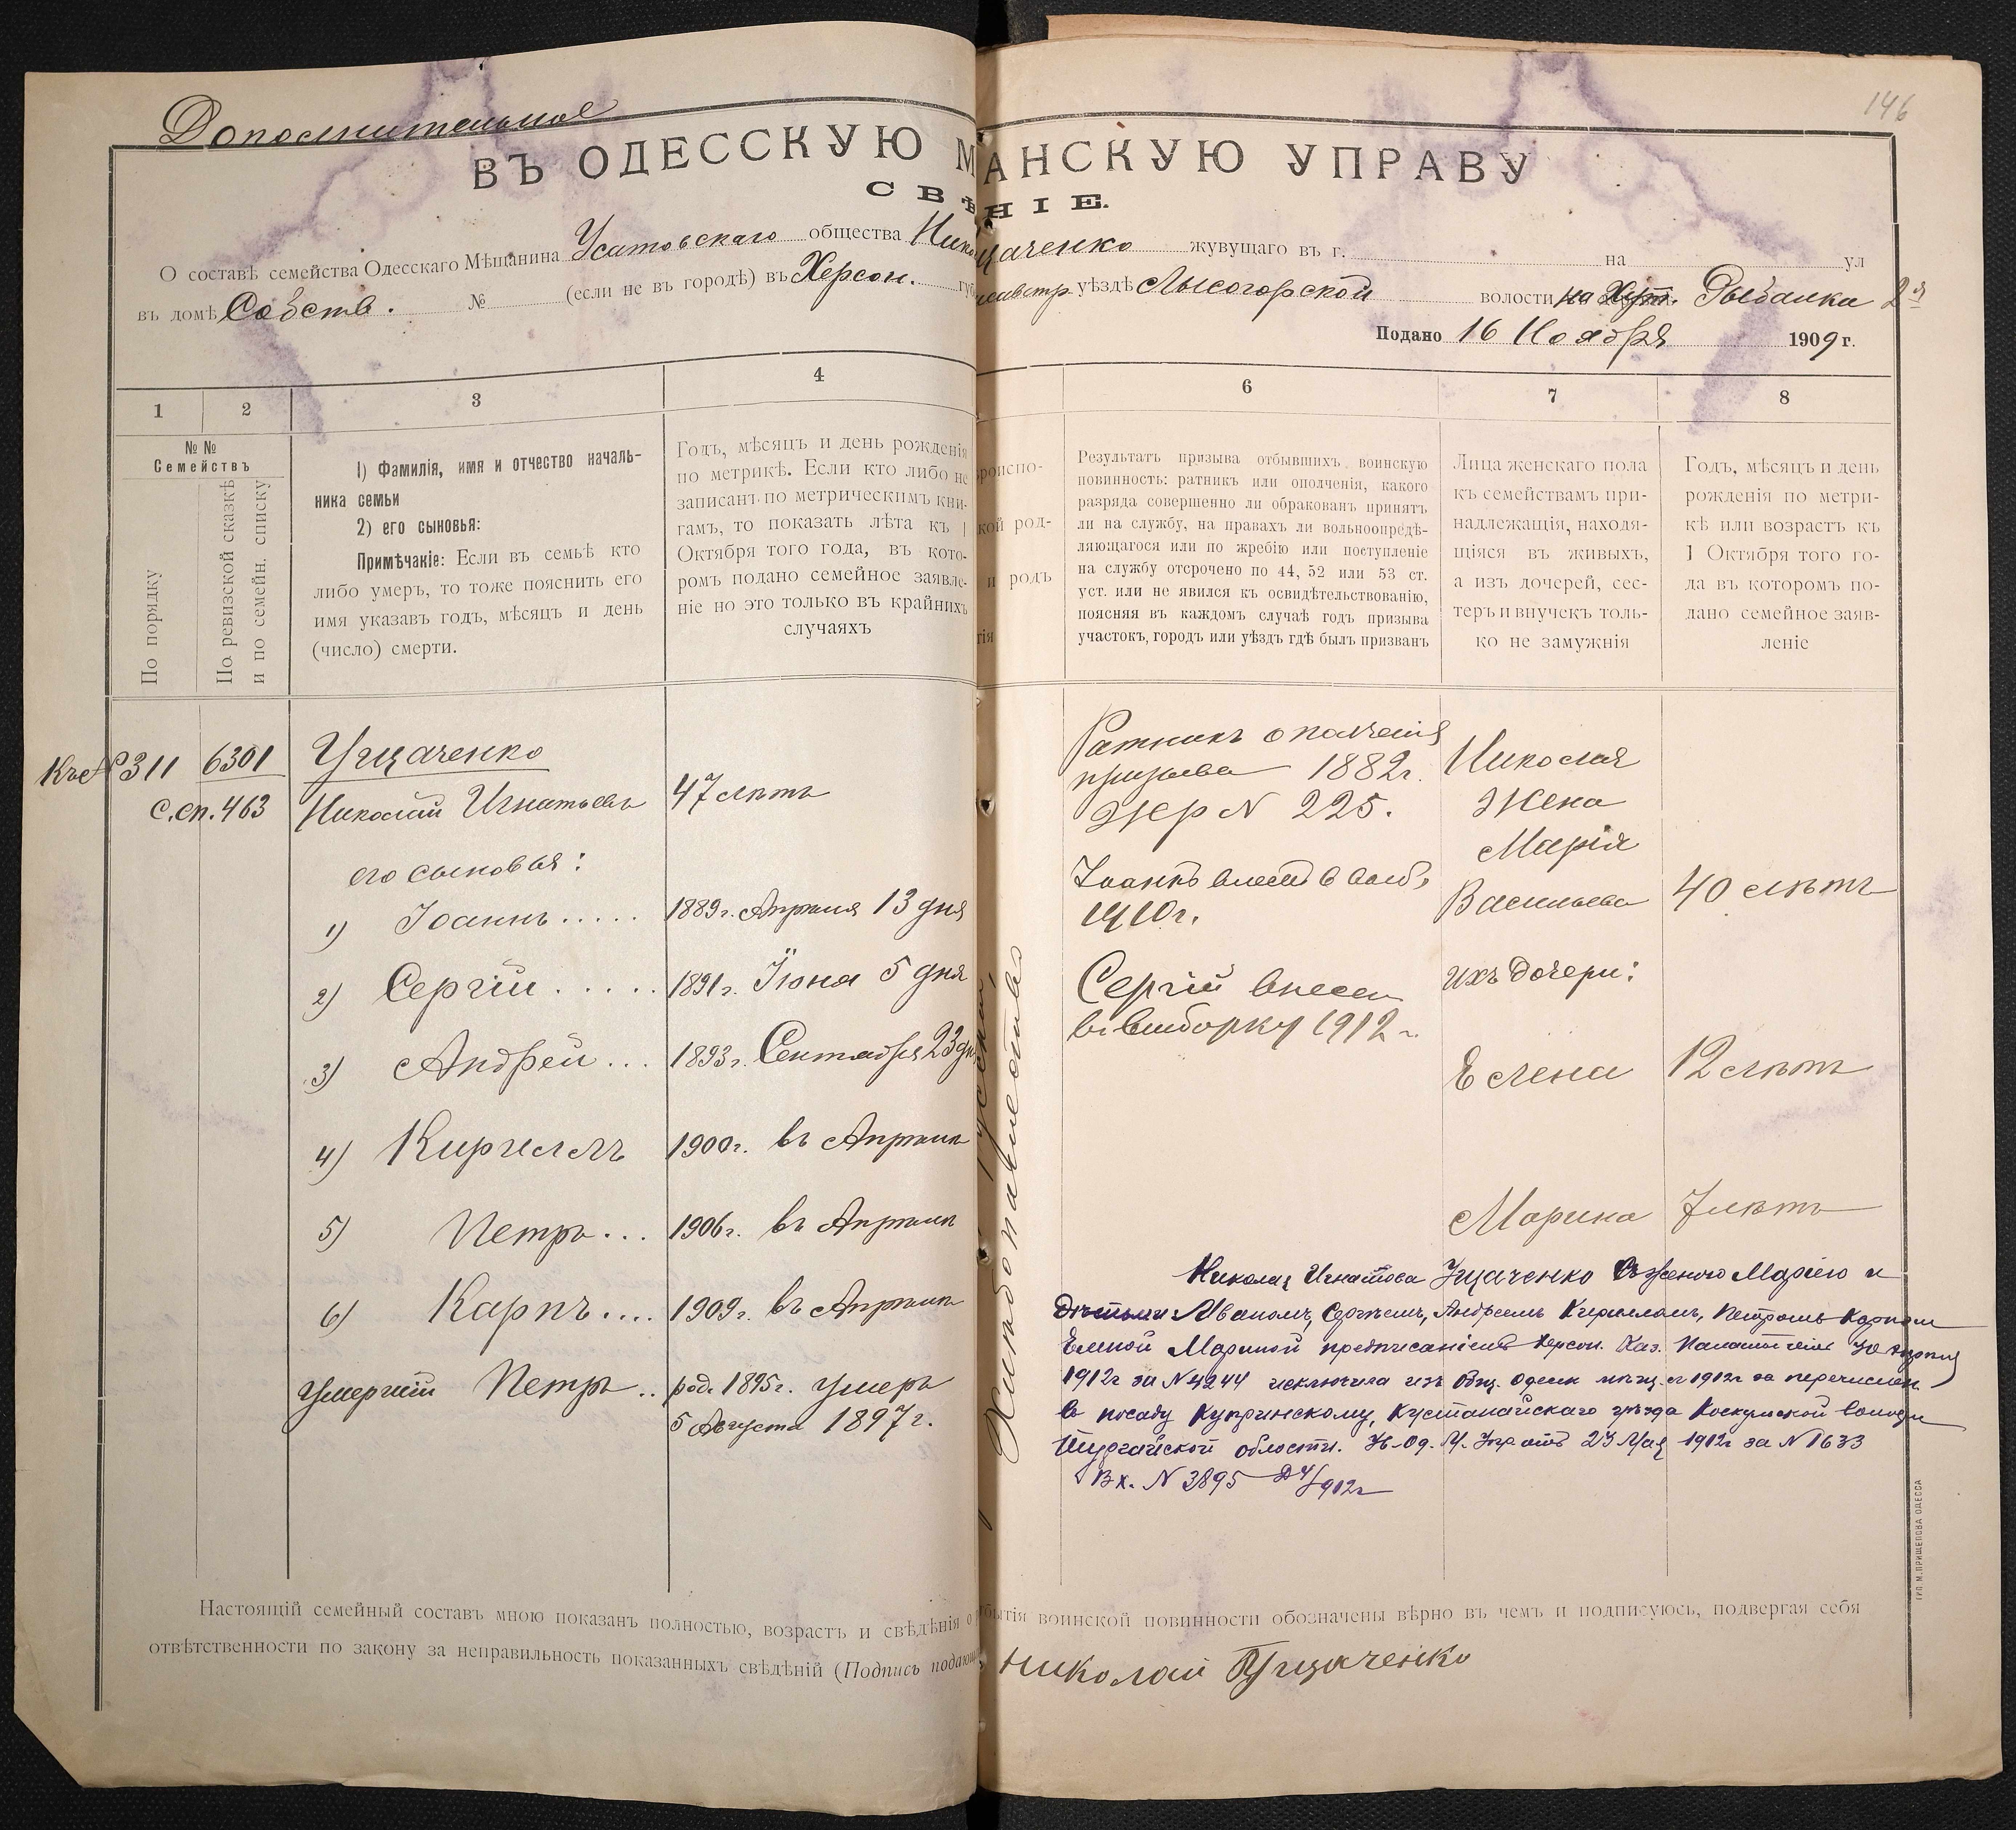 146
Дополнительное
ВЪ ОДЕССКУЮ М АНСКУЮ УПРАВУ
СВѢ НІЕ.
О составѣ семейства Одесскаго Мѣщанина Усатовскаго общества Нико щаченко жувущаго въ г. на ул
въ домѣ Собств. № (если не въ городѣ) въ Херсон. уѣздѣ Лысогорской волости на Хут. Рыбалка 2я
Подано 16 Ноября 1909 г.
1 2 3 4 6 7 8
№ №
Семействъ
По порядку
По ревизской сказкѣ
и по семейн. списку
1) Фамилія, имя и отчество началь-
ника семьи
2) его сыновья:
Примѣчакіе: Если въ семьѣ кто
либо умеръ, то тоже пояснить его
имя указавъ годъ, мѣсяцъ и день
(число) смерти.
Годъ, мѣсяцъ и день рожденія
по метрикѣ. Если кто либо не
записанъ по метрическимъ кни-
гамъ, то показать лѣта къ 1
Октября того года, въ кото-
ромъ подано семейное заявле-
ніе но это только въ крайнихъ
случаяхъ
роиспо-
кой род-
и родъ
гія
Результатъ призыва отбывшихъ воинскую
повинность: ратник или ополченія, какого
разряда совершенно ли обракованъ принятъ
ли на службу, на правахъ ли вольноопредѣ-
ляющагося или по жребію или поступленіе
на службу отсрочено по 44, 52 или 53 ст.
уст. или не явился къ освидѣтельствованію,
поясняя въ каждомъ случаѣ годъ призыва
участокъ, городъ или уѣздъ гдѣ былъ призванъ
Лица женскаго пола
къ семействамъ при-
надлежащія, находя-
щіяся въ живыхъ,
а изъ дочерей, сес-
теръ и внучекъ толь-
ко не замужнія
Годъ, мѣсяцъ и день
рожденія по метри-
кѣ или возрастъ къ
1 Октября того го-
да въ которомъ по-
дано семейное заяв-
леніе
Къ № 311 6301 Ущаченко
с.сп. 463 Николай Игнатьевъ 47 лѣтъ
его сыновья:
1) Іоаннъ..... 1889г. Апрѣля 13 дня
2) Сергій..... 1891г. Іюня 5 дня
3) Андрей... 1893г. Сентября 23 дн
4) Кириллъ 1900г. въ Апрѣлѣ
5) Петръ... 1906г. въ Апрѣлѣ
6) Карпъ.... 1909г. въ Апрѣлѣ
умершій Петръ.. род. 1895г. умеръ
5 Августа 1897 г.
Ратникъ ополченія
призыва 1882г.
жер N 225.
1910г.
Сергій внесен
въ выборку 1912г.
Николая
жена
Марія
Васильева 40 лѣтъ
ихъ дочери:
Елена 12 лѣтъ
Марина 7 лѣтъ
Николай Игнатова Ущаченко съ женою Маріею и
дѣтьми: Иваномъ, Сергѣемъ, Андреемъ Кирилломъ, Петромъ Карпом
Еленой Мариной предписаніемъ Херсон. Каз. Палаты отъ 30 Апрѣля
1912г за N 4244 исключена изъ Общ. Одесск мѣщ. съ 1912г за перечислен.
в посаду Купринскому, Кустанайскаго уѣзда волости
Тургайской области. 23 Мая 1912г за N 1633
Вх. N 3895
Настоящій семейный составъ мною показанъ полностью, возрастъ и свѣдѣнія о бытія воинской повинности обозначены вѣрно въ чемъ и подписуюсь, подвергая себя
отвѣтственности по закону за неправильность показанныхъ свѣдѣній (Подпись подающ Николай Ущаченко
ТИП. М. ПРИЩЕПОВА ОДЕССА